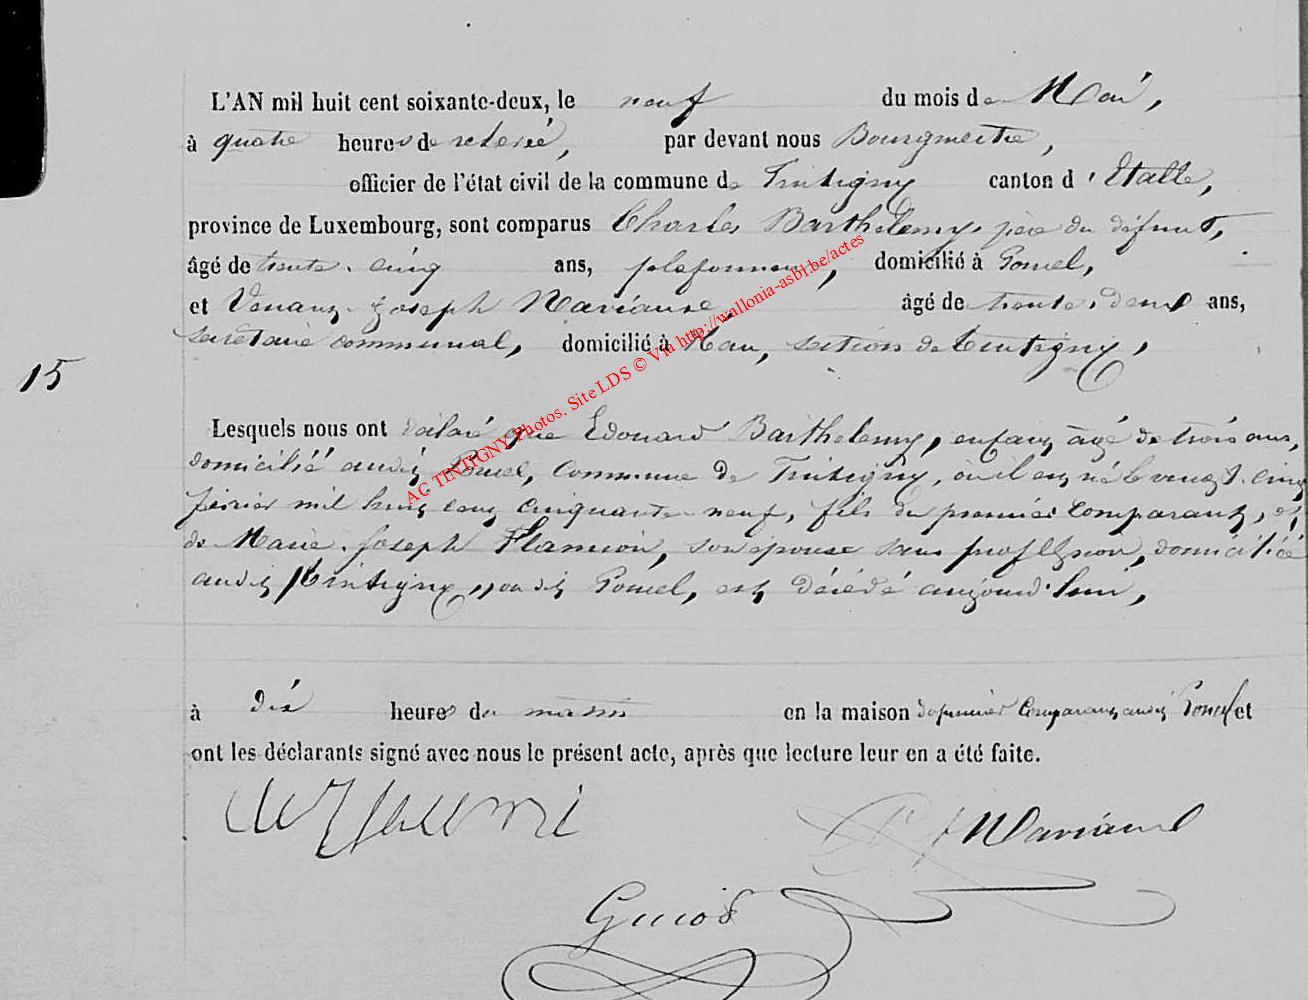 L'AN mil huit cent soixante-deux, le neuf du mois de Mai,
à quatre heures de relevé, par devant nous Bourgmestre,
officier de l'état civil de la commune de Tintigny canton d'Etalle,
province de Luxembourg, sont comparus Charles Barthelemy, père du défunt,
âgé de trente-cinq ans, plafonneur, domicilié à Poncel,
et Venant-Joseph Mariause, âgé de trente-deux ans,
secrétaire communal, domicilié à Han, section de Tintigny,
15
Lesquels nous ont déclaré que Edouard Barthelemy, enfant âgé de trois ans,
domicilié audit Poncel, commune de Tintigny, où il est né le vingt-cinq
février mil huit cent cinquante-neuf, fils du premier comparant, et
de Marie-Joseph Flamion, son épouse sans profession, domiciliée
audit Tintigny, audit Poncel, est décédé aujourd'hui,
à dix heures du matin en la maison du premier comparant audit Poncel et
ont les déclarants signé avec nous le présent acte, après que lecture leur en a été faite.
AC TINTIGNY Photos. Site LDS © Via http://wallonia-asbl.be/actes